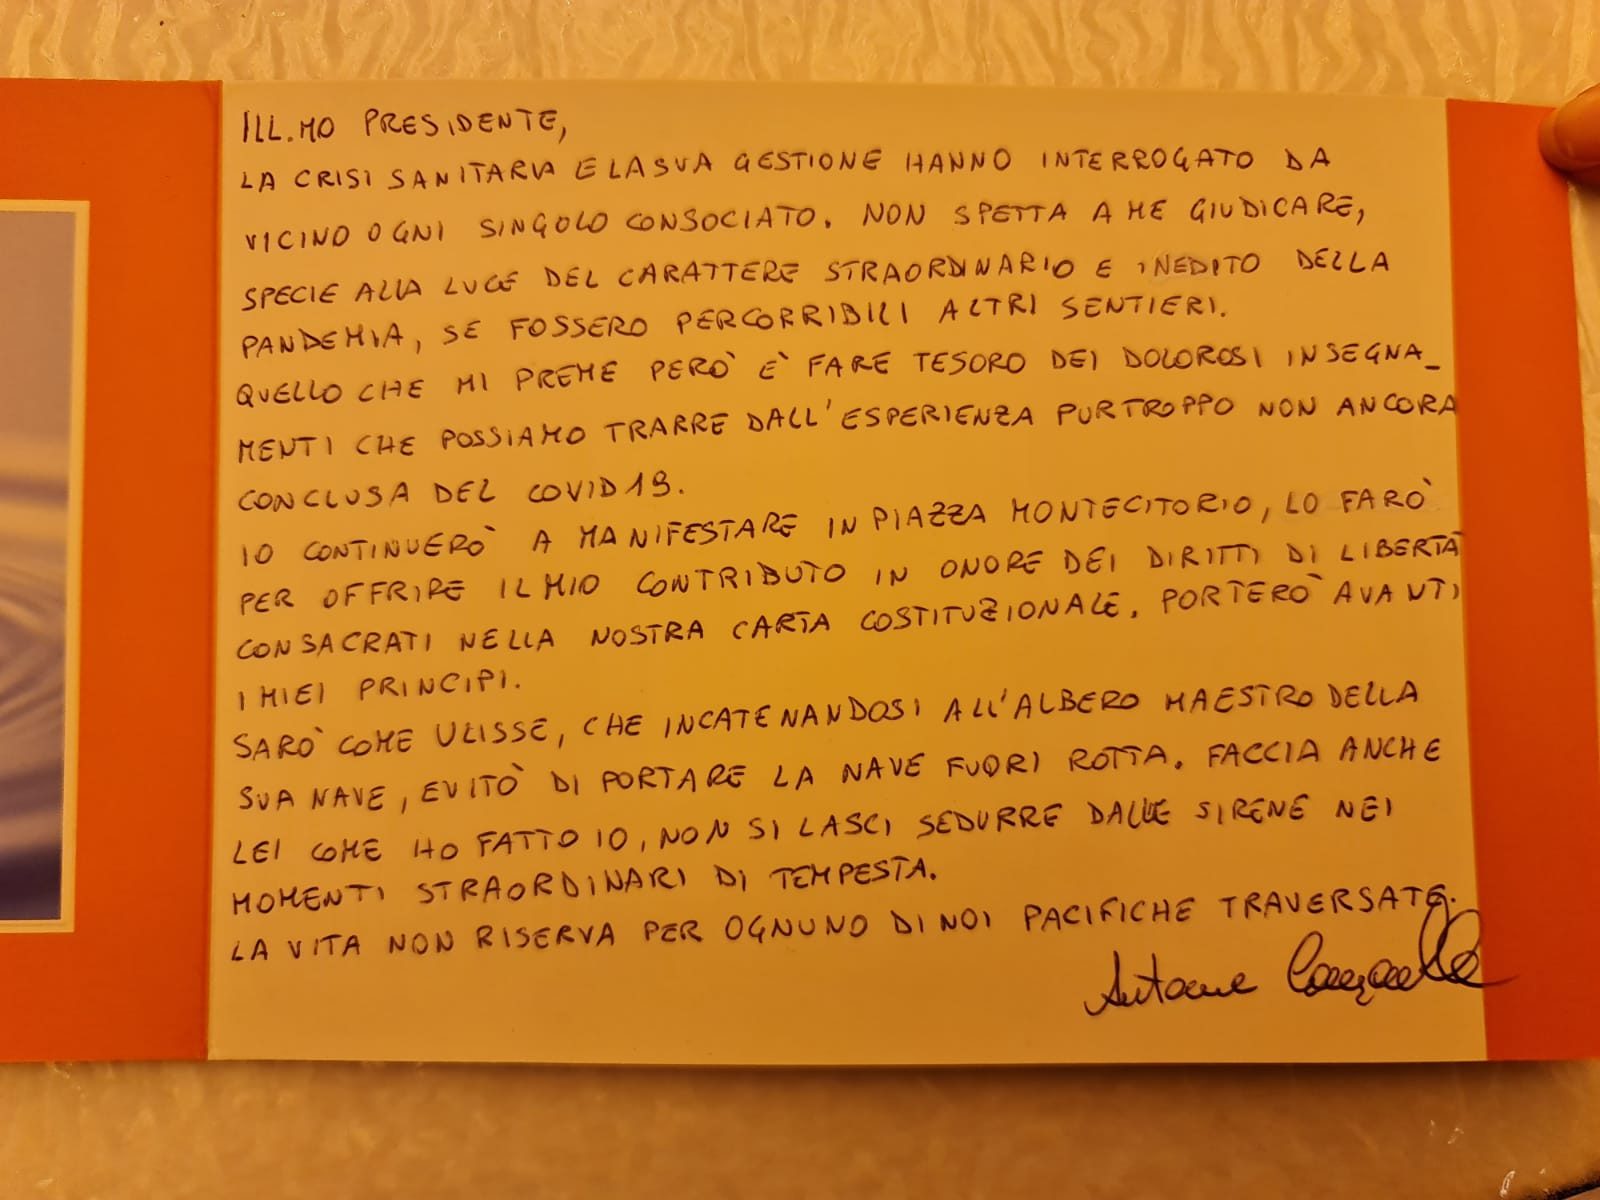 ILL.MO PRESIDENTE,
LA CRISI SANITARIA E LA SUA GESTIONE HANNO INTERROGATO DA
VICINO OGNI SINGOLO CONSOCIATO. NON SPETTA A ME GIUDICARE,
SPECIE ALLA LUCE DEL CARATTERE STRAORDINARIO E INEDITO DELLA
PANDEMIA, SE FOSSERO PERCORRIBILI ALTRI SENTIERI.
QUELLO CHE MI PREME PERÒ È FARE TESORO DEI DOLOROSI INSEGNA_
MENTI CHE POSSIAMO TRARRE DALL'ESPERIENZA PURTROPPO NON ANCORA
CONCLUSA DEL COVID19.
IO CONTINUERÒ A MANIFESTARE IN PIAZZA MONTECITORIO, LO FARÒ
PER OFFRIRE IL MIO CONTRIBUTO IN ONORE DEI DIRITTI DI LIBERTÀ
CONSACRATI NELLA NOSTRA CARTA COSTITUZIONALE. PORTERÒ AVANTI
I MIEI PRINCIPI.
SARÒ COME ULISSE, CHE INCATENANDOSI ALL'ALBERO MAESTRO DELLA
SUA NAVE, EVITÒ DI PORTARE LA NAVE FUORI ROTTA. FACCIA ANCHE
LEI COME HO FATTO IO, NON SI LASCI SEDURRE DALLE SIRENE NEI
MOMENTI STRAORDINARI DI TEMPESTA.
LA VITA NON RISERVA PER OGNUNO DI NOI PACIFICHE TRAVERSATE.